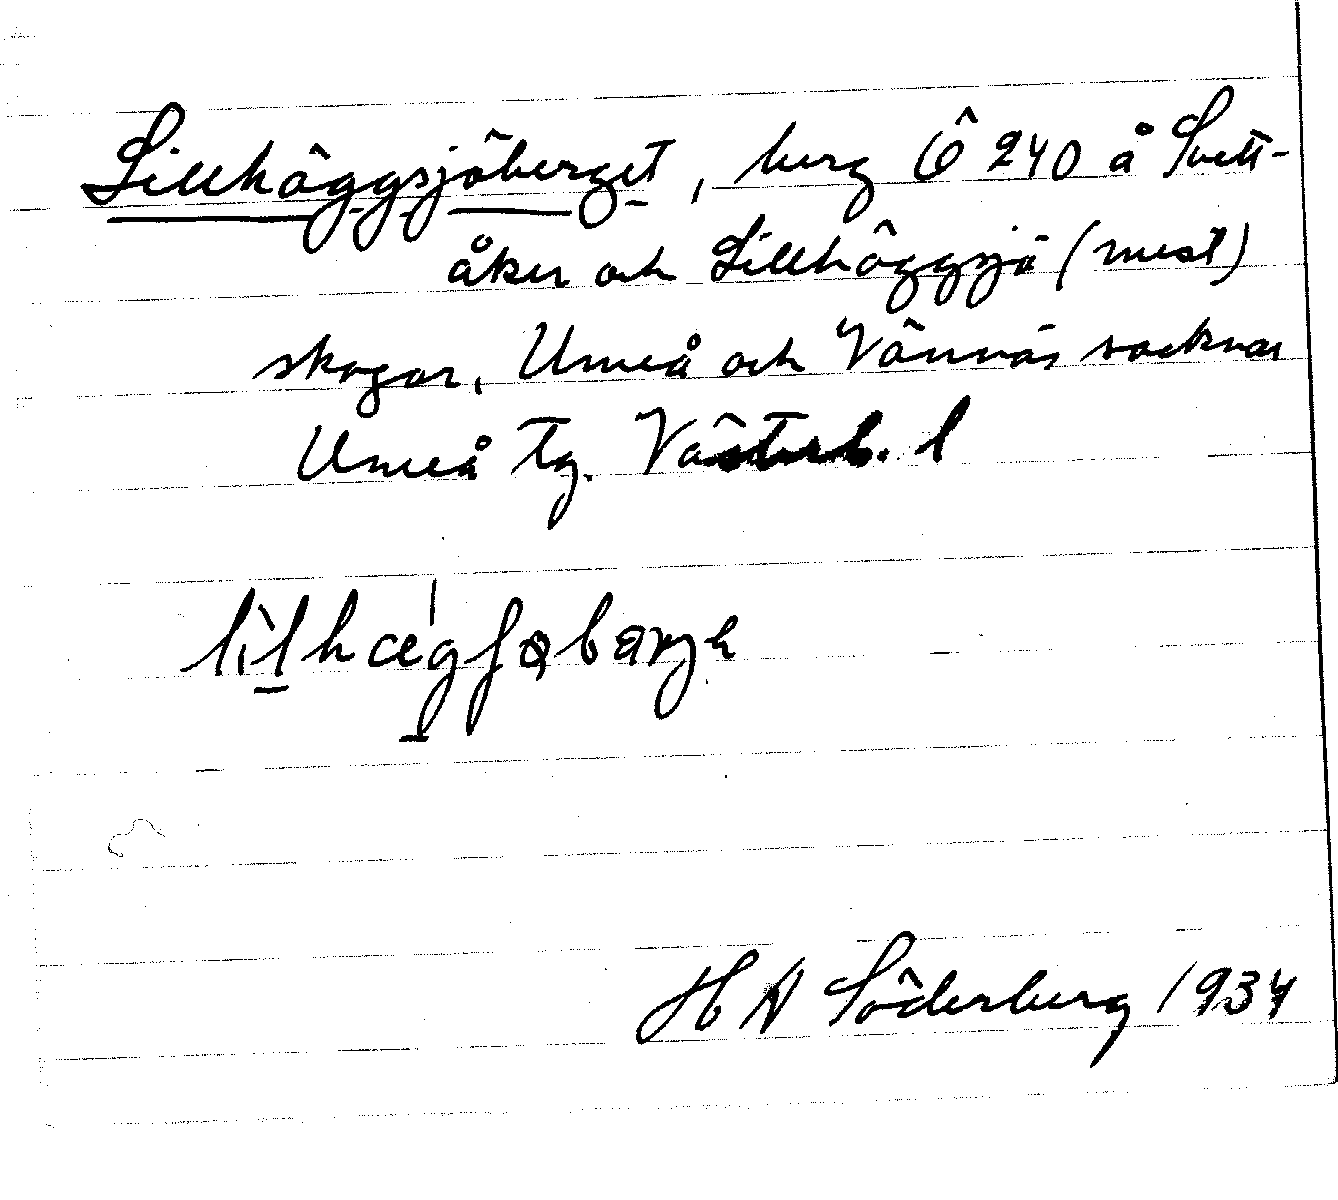 Lillhäggsjöberget, berg Ö 240 å Svett-
åker och Lillhäggsjö (mest)
skogar, Umeå och Vännäs socknar
Umeå Tg. Västerb. l
H A Söderberg 1934